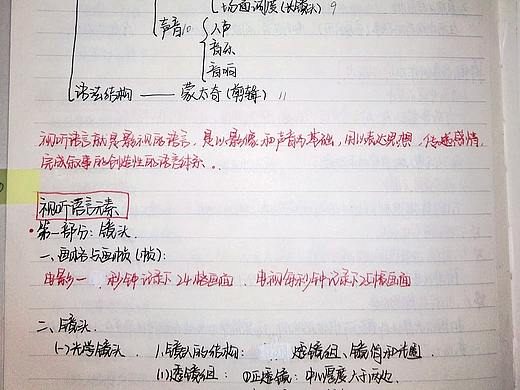 场面调度(长镜头) 9
声音10 人声
音乐
音响
语法结构 —— 蒙太奇(剪辑) 11
视听语言就是影视的语言，是以影像和声音为基础，用以表达思想，传递感情，
完成叙事的创造性的语言体系。
视听语言元素
第一部分：镜头.
一、画格与画帧(帧)：
电影一 秒钟记录下24格画面、电视每秒钟记录下25帧画面
二、镜头.
(一)光学镜头. 1.镜头的结构： 透镜组、镜筒和光圈.
(1)透镜组： ①正透镜：中心厚度大于边处